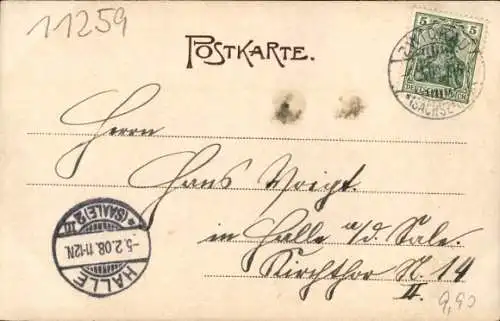 11259
POSTKARTE.
5 5
DEUTSCHES REICH
ZWICKAU
(SACHSEN)
Herrn
Hans Voigt.
in Halle a/d. Sale.
Kirchthor N. 14
II.
9,90
HALLE
-5.2.08.11-12N.
*(SAALE)2 II